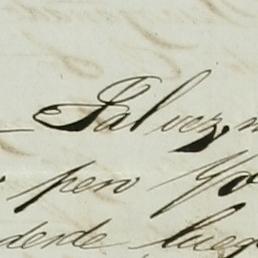 Tal vez,
pero Yo
desde lueg